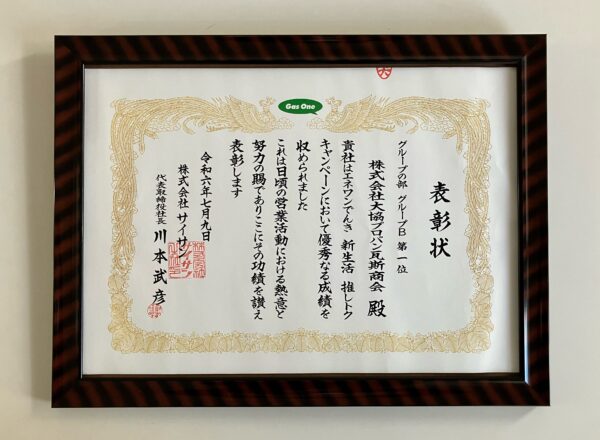 Gas One
表彰状
グループの部 グループB 第一位
株式会社大協プロパン瓦斯商会 殿
貴社はエネワンでんき 新生活 推しトク
キャンペーンにおいて優秀なる成績を
収められました
これは日頃の営業活動における熱意と
努力の賜でありここにその功績を讃え
表彰します
令和六年七月九日
株式会社 サイサン
代表取締役社長 川本武彦